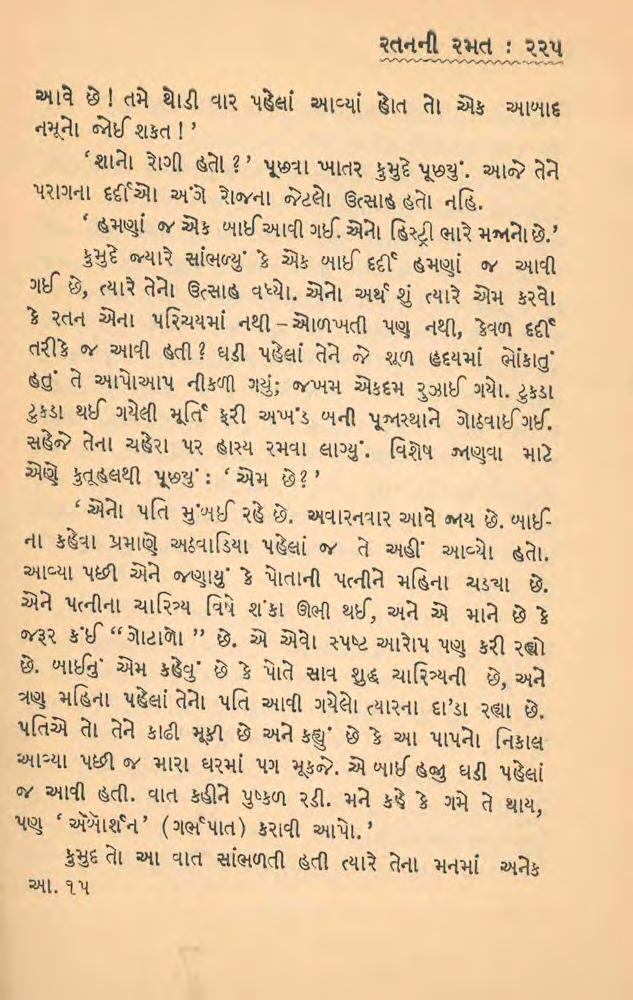 રતનની રમત : ૨૨૫
આવે છે! તમે થોડી વાર પહેલાં આવ્યાં હોત તો એક આબાદ
નમૂનો જોઈ શકત!’
‘શાનો રોગી હતો?’ પૂછવા ખાતર કુમુદે પૂછ્યું. આજે તેને
પરાગના દર્દીઓ અંગે રોજના જેટલો ઉત્સાહ હતો નહિ.
‘હમણાં જ એક બાઈ આવી ગઈ. એનો હિસ્ટ્રી ભારે મજાનો છે.’
કુમુદે જ્યારે સાંભળ્યું કે એક બાઈ દર્દી હમણાં જ આવી
ગઈ છે, ત્યારે તેનો ઉત્સાહ વધ્યો. એનો અર્થ શું ત્યારે એમ કરવો
કે રતન એના પરિચયમાં નથી – ઓળખતી પણ નથી, કેવળ દર્દી
તરીકે જ આવી હતી? ઘડી પહેલાં તેને જે શૂળ હૃદયમાં ભોંકાતું
હતું તે આપોઆપ નીકળી ગયું; જખમ એકદમ રુઝાઈ ગયો. ટુકડા
ટુકડા થઈ ગયેલી મૂર્તિ ફરી અખંડ બની પૂજાસ્થાને ગોઠવાઈ ગઈ.
સહેજે તેના ચહેરા પર હાસ્ય રમવા લાગ્યું. વિશેષ જાણવા માટે
એણે કુતૂહલથી પૂછ્યું : ‘એમ છે?’
‘એનો પતિ મુંબઈ રહે છે. અવારનવાર આવે જાય છે. બાઈ-
ના કહેવા પ્રમાણે અઠવાડિયા પહેલાં જ તે અહીં આવ્યો હતો.
આવ્યા પછી એને જણાયું કે પોતાની પત્નીને મહિના ચડ્યા છે.
એને પત્નીના ચારિત્ર્ય વિષે શંકા ઊભી થઈ, અને એ માને છે કે
જરૂર કંઈ “ગોટાળો” છે. એ એવો સ્પષ્ટ આરોપ પણ કરી રહ્યો
છે. બાઈનું એમ કહેવું છે કે પોતે સાવ શુદ્ધ ચારિત્ર્યની છે, અને
ત્રણ મહિના પહેલાં તેનો પતિ આવી ગયેલો ત્યારના દા'ડા રહ્યા છે.
પતિએ તો તેને કાઢી મૂકી છે અને કહ્યું છે કે આ પાપનો નિકાલ
આવ્યા પછી જ મારા ઘરમાં પગ મૂકજે. એ બાઈ હજુ ઘડી પહેલાં
જ આવી હતી. વાત કહીને પુષ્કળ રડી. મને કહે કે ગમે તે થાય,
પણ ‘ઍબૉર્શન’ (ગર્ભપાત) કરાવી આપો.’
કુમુદ તો આ વાત સાંભળતી હતી ત્યારે તેના મનમાં અનેક
આ. ૧૫